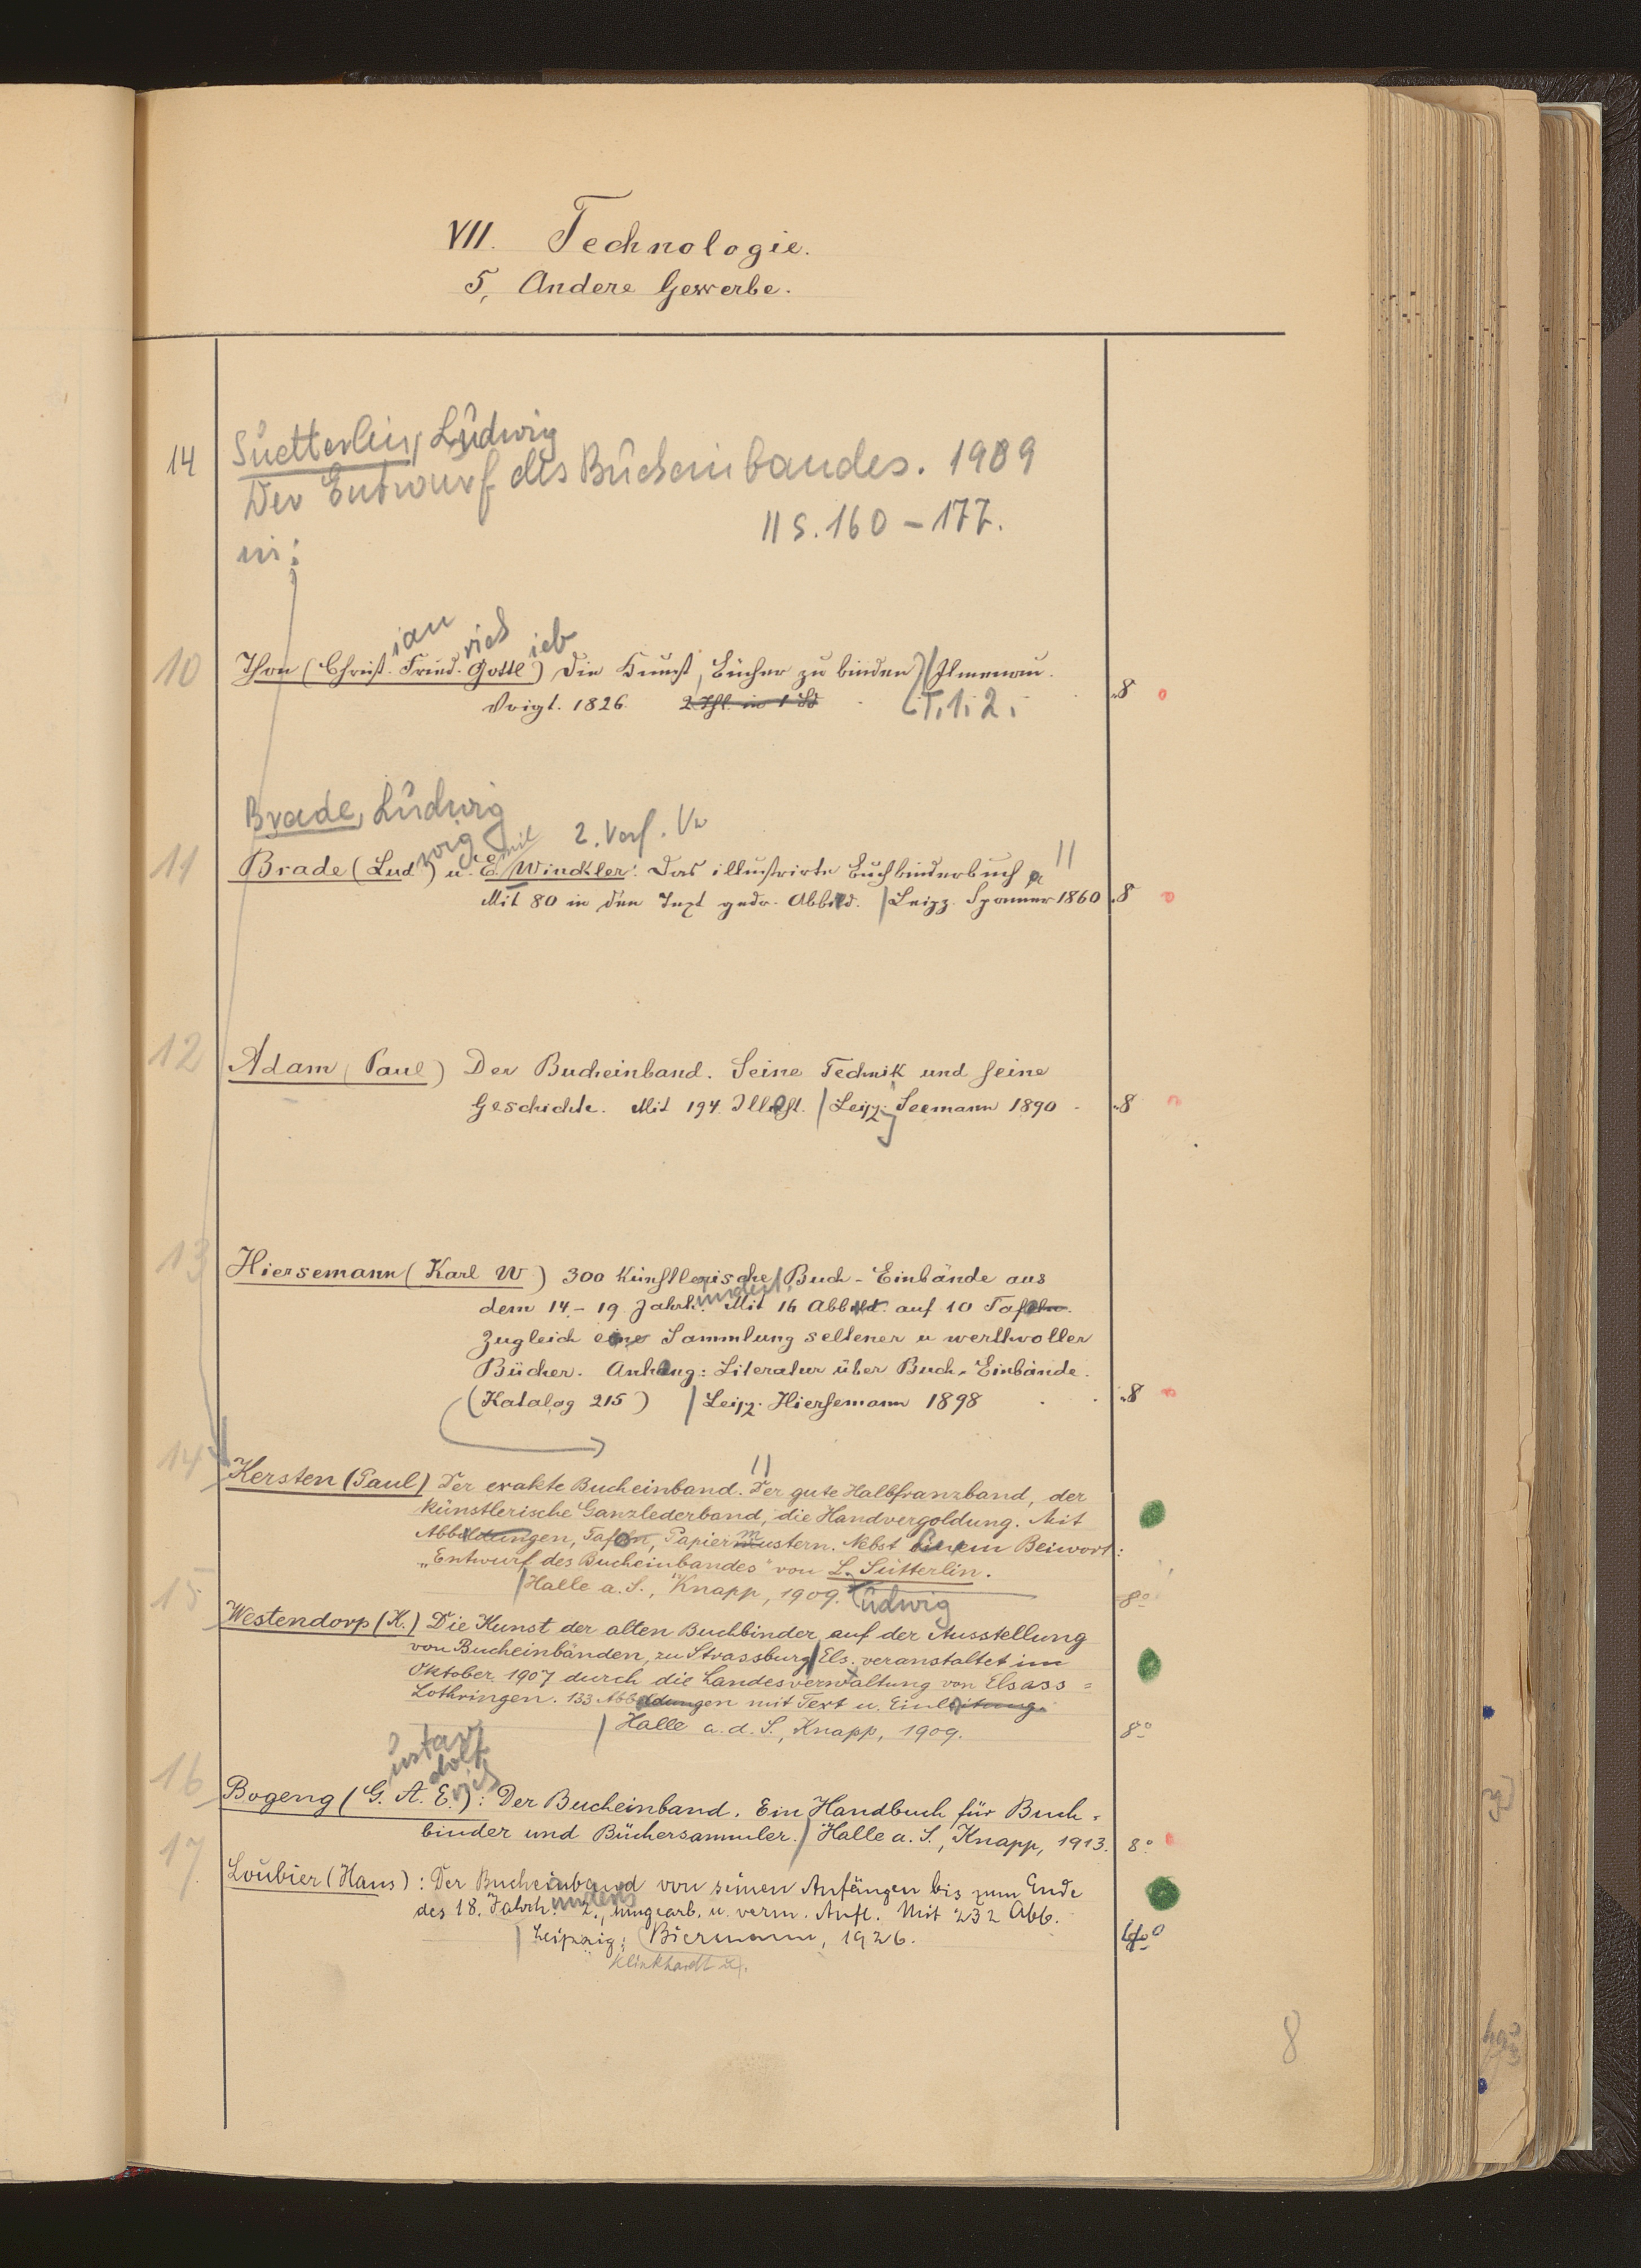 VII. Technologie.
5, Andere Gewerbe.
14 Suetterlin, Ludwig
Der Entwurf des Bucheinbandes. 1909
11 S. 160 – 177.
in:
ian rich ieb
10 Thon (Christ. Fried. Gottl.) Die Kunst, Bücher zu binden / Ilmenau.
Voigt. 1826. 2 Thl. in 1 Bd 8
T. 1. 2.
Brade, Ludwig
wig Emil 2. Verf. Vw
11 Brade (Lud.) u. E. Winckler: Das illustrirte Buchbinderbuch 11
Mit 80 in den Text gedr. Abbild. / Leipz. Spamer 1860 8
12 Adam (Paul) Der Bucheinband. Seine Technik und seine
Geschichte. Mit 194 Illust. / Leipz. Seemann 1890 8
13 Hiersemann (Karl W.) 300 Künstlerische / Buch-Einbände aus
dem 14.-19. Jahrh. undert. Mit 16 Abbild. auf 10 Tafeln.
Zugleich eine Sammlung seltener u werthvoller
Bücher. Anhang: Literatur über Buch-Einbände.
(Katalog 215) / Leipz. Hiersemann 1898 8
11
14 Kersten (Paul) Der exakte Bucheinband. Der gute Halbfranzband, der
künstlerische Ganzlederband, die Handvergoldung. Mit
Abbildungen, Tafeln, Papiermustern. Nebst einem Beiwort:
„Entwurf des Bucheinbandes" von L. Sütterlin.
/ Halle a. S., Knapp, 1909. Ludwig 8°
15 Westendorp (K.) Die Kunst der alten Buchbinder auf der Ausstellung
von Bucheinbänden, zu Strassburg / Els. veranstaltet im
Oktober 1907 durch die Landesverwaltung von Elsass =
Lothringen. 133 Abbildungen mit Text u. Einleitung.
/ Halle a. d. S., Knapp, 1909. 8°
ustav dolf rich
16 Bogeng (G. A. E.): Der Bucheinband. Ein Handbuch für Buch-
binder und Büchersammler. / Halle a. S., Knapp, 1913. 8°
17 Loubier (Hans): Der Bucheinband von seinen Anfängen bis zum Ende
des 18. Jahrh. underts 2., umgearb. u. verm. Aufl. Mit 232 Abb.
/ Leipzig: Biermann, 1926. 4°
Klinkhardt &.
8